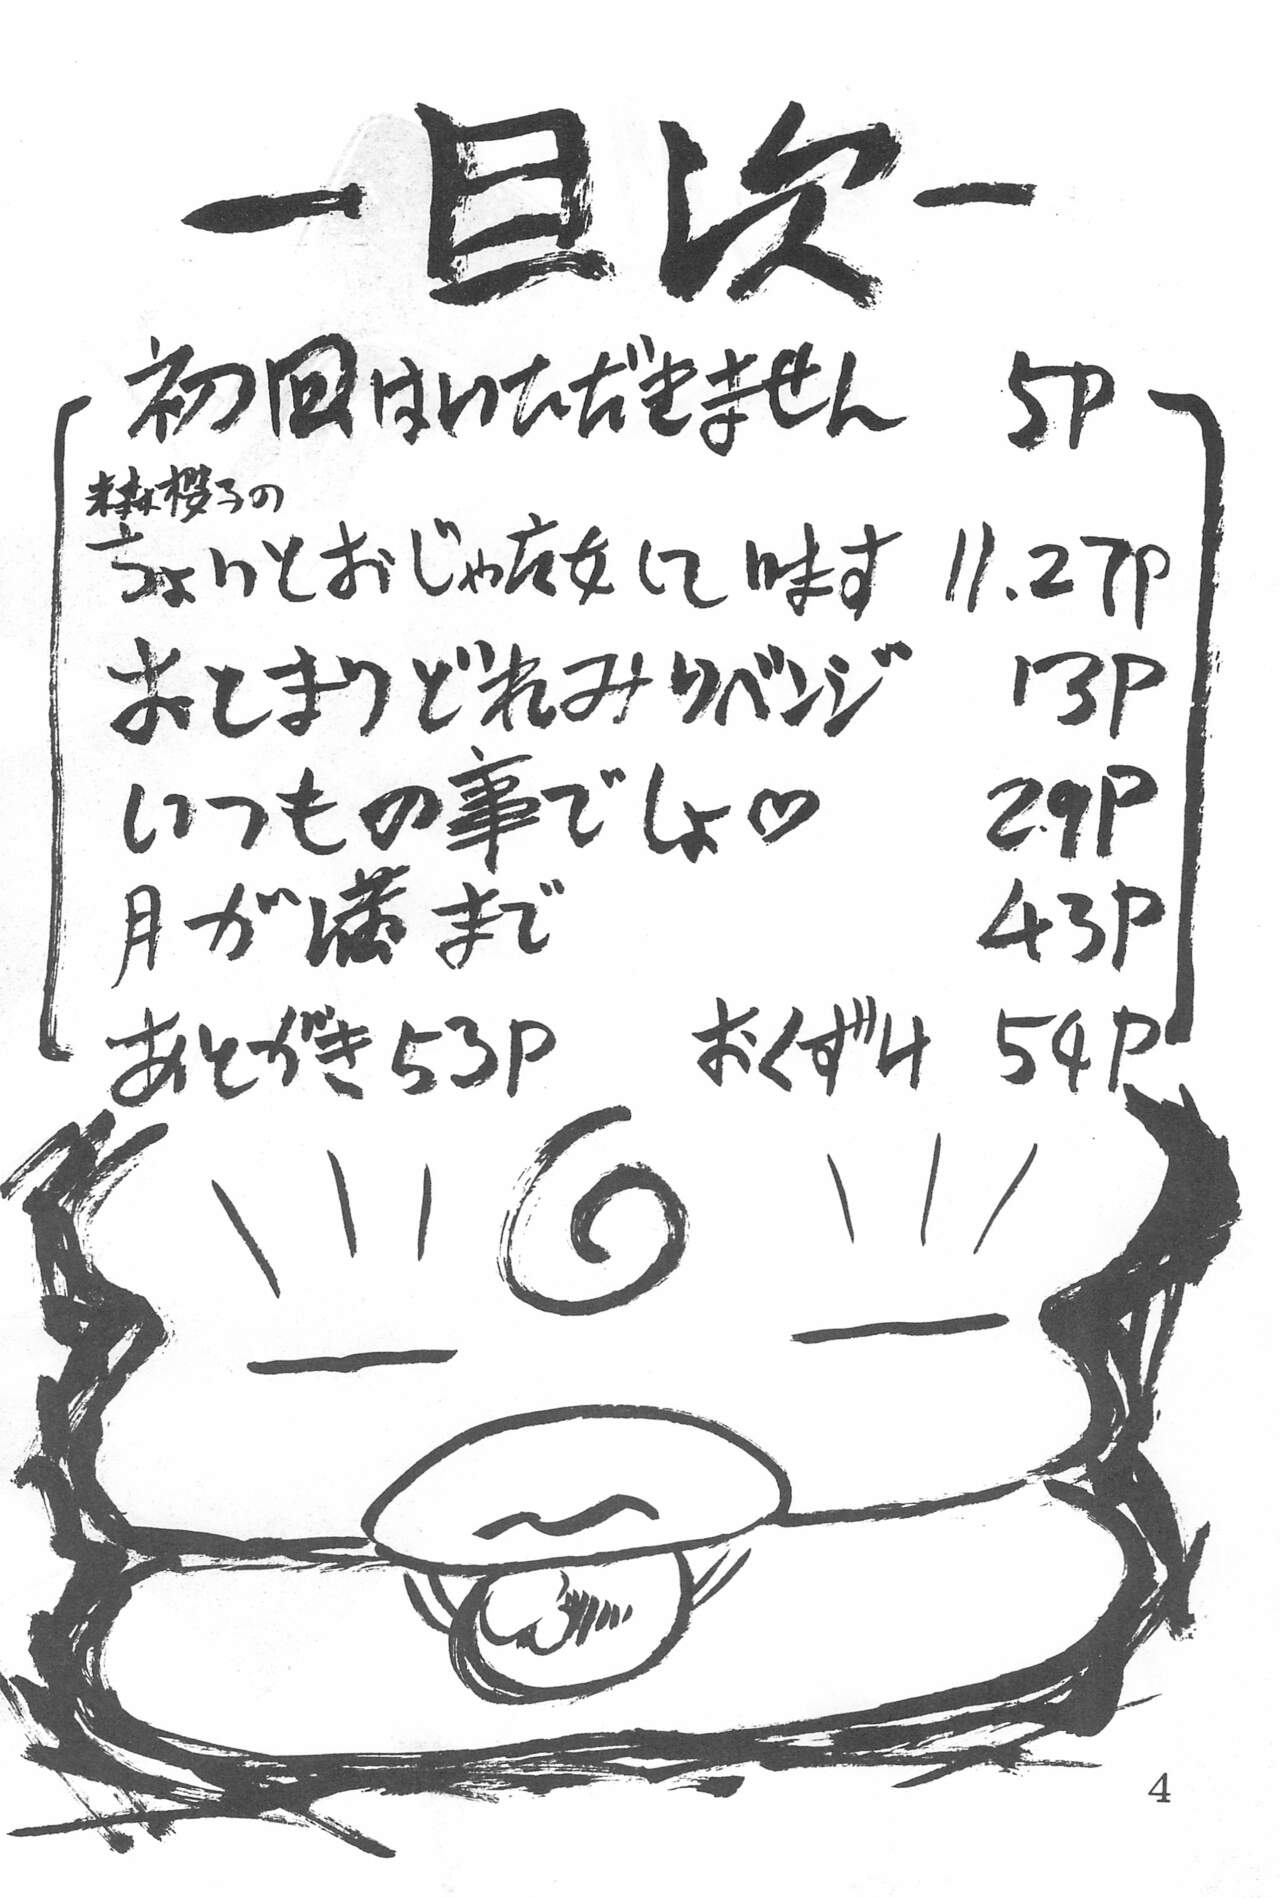 ー目次ー
初回はいただきません 5P
森桜子の
ちょいとおじゃ女して味ます 11.27P
おとまりどれみリベンジ 13P
いつもの事でしょ♡ 29P
月が満まで 43P
あとがき 53P おくずけ 54P
4